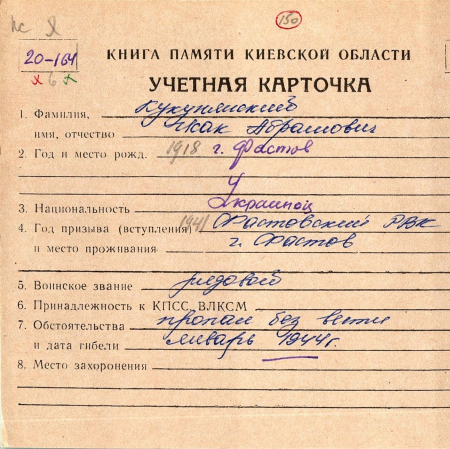 150
20-164
КНИГА ПАМЯТИ КИЕВСКОЙ ОБЛАСТИ
УЧЕТНАЯ КАРТОЧКА
1. Фамилия,
имя, отчество Абрамович
2. Год и место рожд. 1918 г. Фастов
3. Национальность Украинец
4. Год призыва (вступления) 1941 Фастовский РВК
и место проживания г. Фастов
5. Воинское звание рядовой
6. Принадлежность к КПСС ВЛКСМ
7. Обстоятельства пропал без вести
и дата гибели январь 1944г.
8. Место захоронения